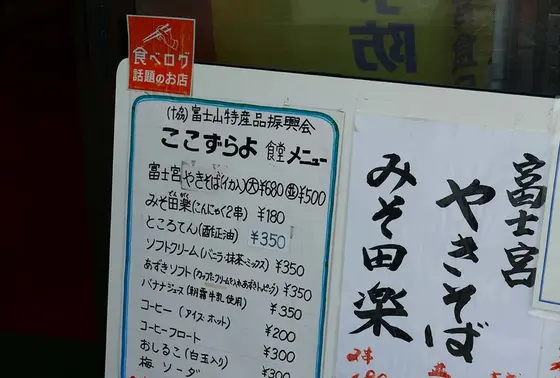 食べログ
話題のお店
(協)富士山特産品振興会
ここずらよ 食堂 メニュー
富士宮やきそば(イカ入)大¥680 並¥500
みそ田楽(こんにゃく2串) ¥180
ところてん(酢正油) ¥350
ソフトクリーム(バニラ・抹茶・ミックス) ¥350
あずきソフト ¥350
バナナジュース(朝霧牛乳使用) ¥350
コーヒー(アイス・ホット) ¥200
コーヒーフロート ¥300
おしるこ(白玉入り) ¥300
梅ソーダ
富士宮
やきそば
みそ田楽
予防